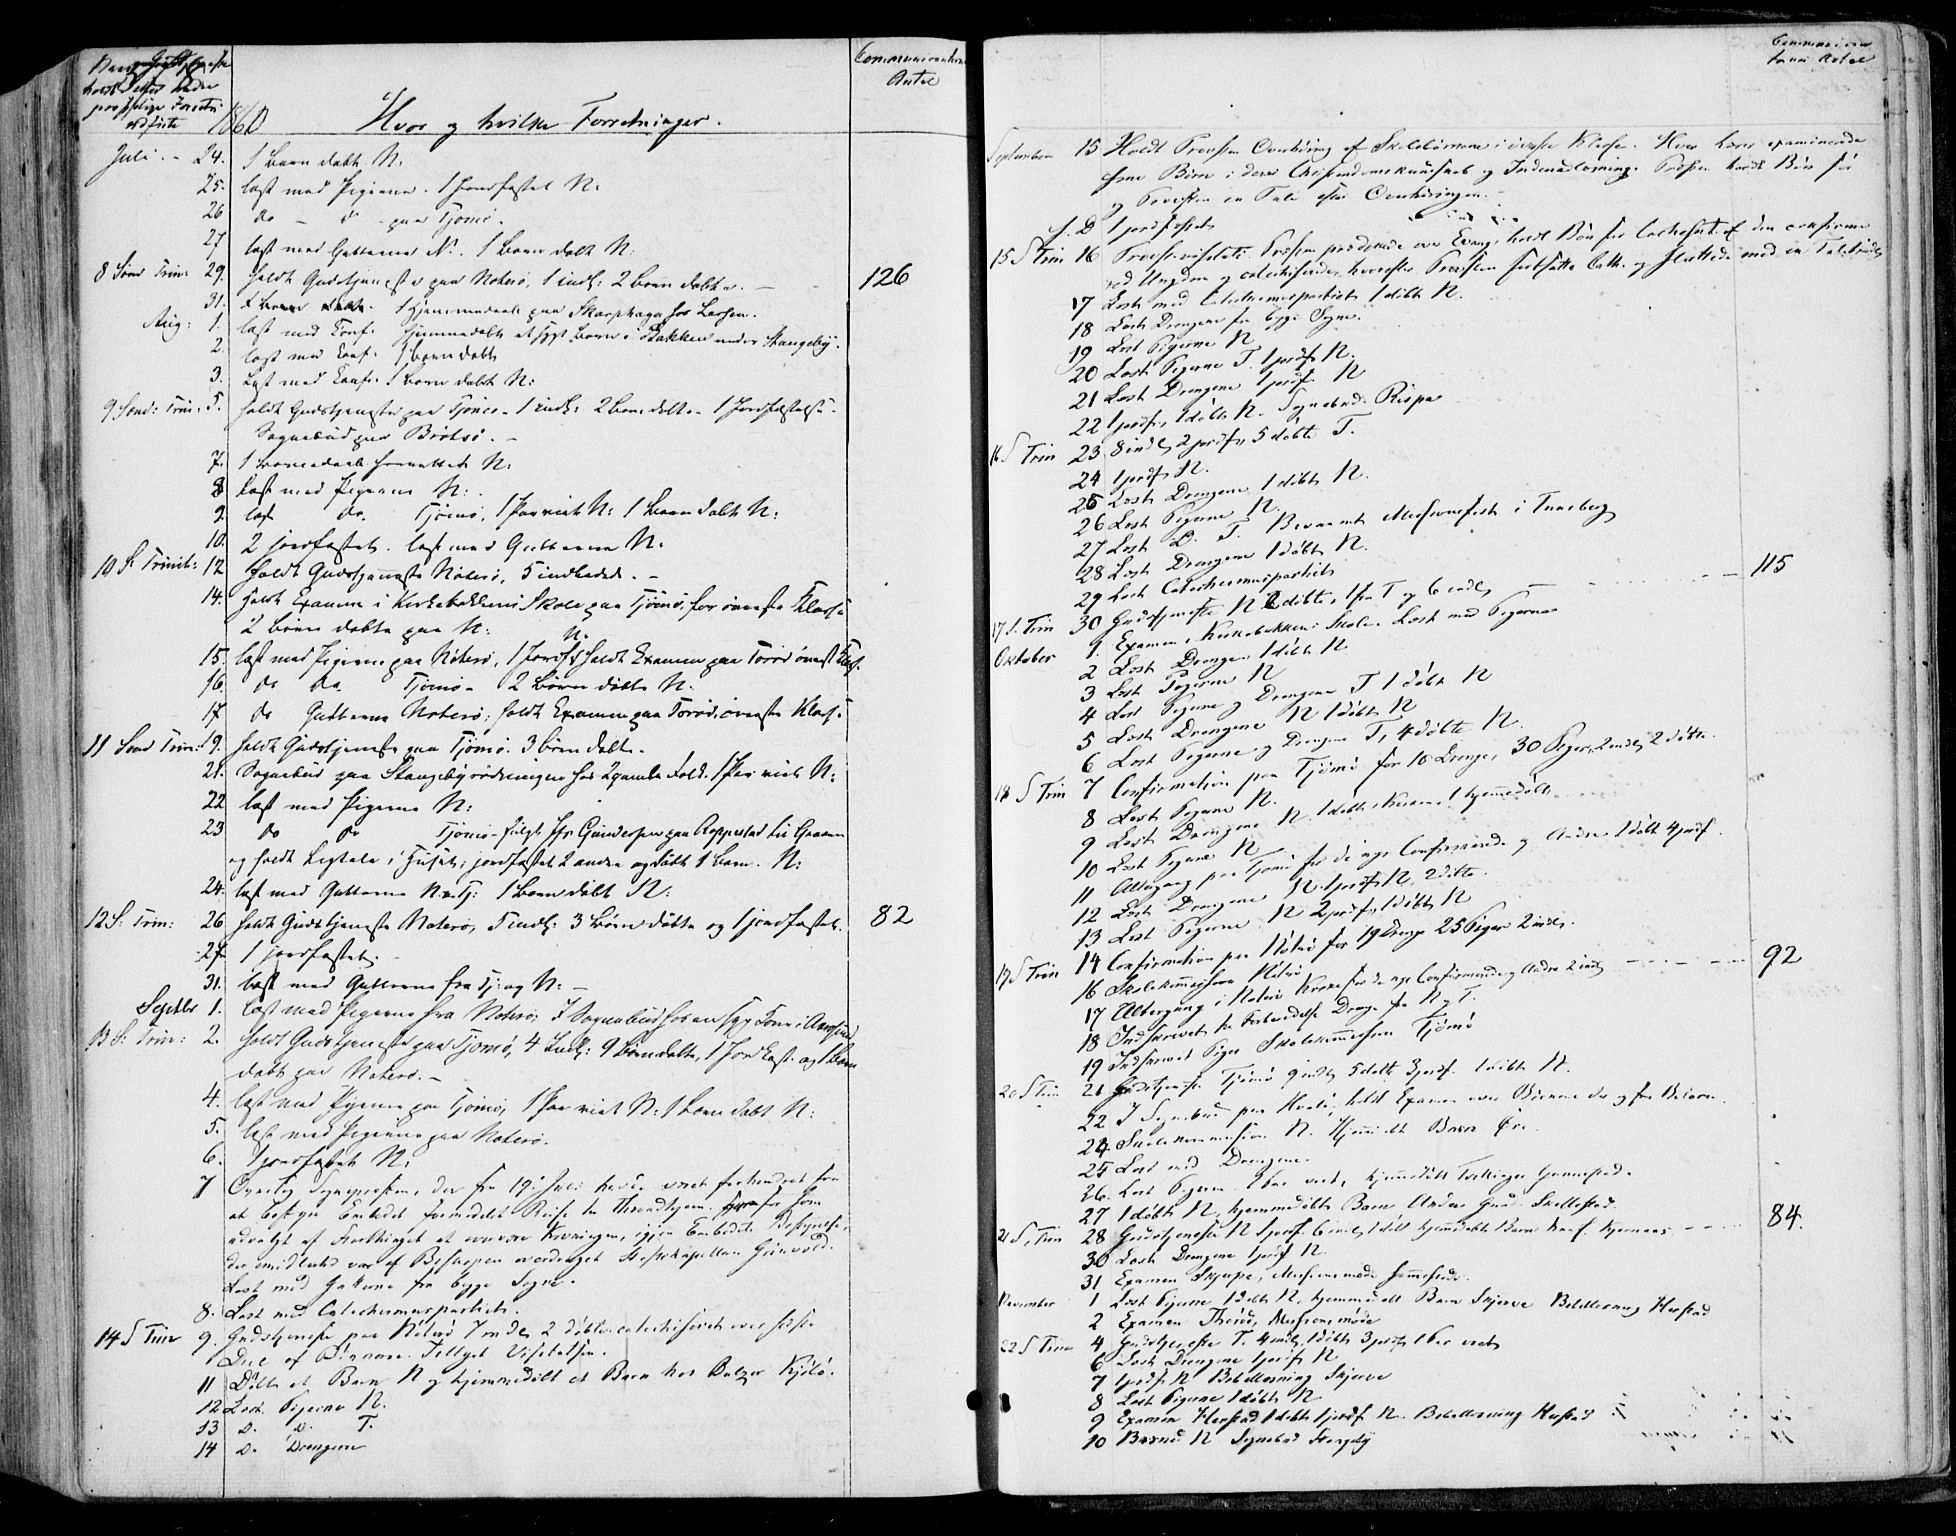 Communicanternes
Antal
1860 Hvor og hvilke Forretninger.
Juli. - 24. 1 Barn døbt N:
25. læst med Pigerne. 1 Jordfæstet N:
26 do - do - paa Tjømø.
27 læst med Gutterne N. 1 Barn døbt N:
8 Sønd Trin: 29. holdt Gudstjeneste paa Nøterø, 1 indl: 2 Børn døbte. — 126
31. 1 Hjemmedaab paa Skarphaga hos Larsen.
Aug: 1. læst med Conf. hjemmedøbt et sygt Barn i Bakken under Stangeby.
2. læst med Conf. 1 Barn døbt
3. Læst med Conf. 1 Barn døbt N:
9 Sønd: Trin: 5. holdt Gudstjeneste paa Tjømø - 1 indl: 2 Børn døbte - 1 Jordfæstelse
Sognebud paa Brøtsø. -
7. 1 Barnedaab forrettet N:
8 Læst med Pigerne N:
9. læst do. Tjømø, 1 Par viet N: 1 Barn døbt N:
10. 2 jordfæstet. læst med Gutterne N.
10 S: Trinit: 12 holdt Gudstjeneste Nøterø, 5 indledede. -
14. holdt Examen i Kirkebakkens Skole paa Tjømø, for øverste Klasse
2 Børn døbte paa N:
15. læst med Pigerne paa Nøterø, 1 Jordf. N. holdt Examen paa Torød øverst Klas.
16. do do. Tjømø - 2 Børn døbte N.
17 do Gutterne Nøterø; holdt Examen paa Torød, øverste Klasse
11 Sønd Trin: 19. holdt Gudstjeneste paa Tjømø. 3 Børn døbte.
21. Sognebud paa Stangebyrødningen hos 2 gamle Folk. 1 Par viet N:
22 læst med Pigerne N:
23 do do Tjømø - fulgt Gundersen paa Roppestad til Graven
og holdt Ligtale i Huset; jordfæstet 2 andre og døbt 1 Barn. N:
24. læst med Gutterne N. & Tj: 1 Barn døbt N.
12 S: Trin: 26 holdt Gudstjeneste Nøterø, 5 indl: 3 Børn døbte og 1 jordfæstet. 82
27 1 jordfæstet. -
31. læst med Gutterne fra Tj: og N: -
Septbr 1. læst med Pigerne fra Nøterø, I Sognebud hos en syg Kone i Aarøsund
13 S: Trin: 2. holdt Gudstjeneste paa Tjømø, 4 Indl: 9 Børn døbte, 1 Jordfæst. og 1 Barn
døbt paa Nøterø. -
4. læst med Pigerne paa Tjømø, 1 Par viet N: 1 Barn døbt N:
5. læst med Pigerne paa Nøterø.
6. 1 jordfæstet N:
7 Sognepresten, der fra 19. Juli havde været forhindret fra
at bestyre Embedet formedelst Reise til Throndhjem som
udvalgt af Storthinget at overvære Kroningen, igjen Embedets Bestyrelse,
der imidlertid var af Biskopen overdraget Stiftskapellan Grünvold.
Læst med Gutterne fra begge Sogne.
8. Læst med Catechismuspartiet.
14 S Trin 9. Gudstjeneste paa Nøterø 7 indl, 2 døbte, catechiseret over sidste
Deel af Børnene. Tillyst Visitatsen.
11 Døbt et Barn N og hjemmedøbt et Barn hos Balzer Kjølø.
12 Læst Pigerne N.
13 D. D. T.
14 D. Drengene
September 15 Holdt Provsten Overhøring af Skolebørnene i øverste Klasse. Hver Lærer examinerede
sine Børn i deres Christendomskundskab og Indenadlæsning. Presten holdt Bøn før
og Provsten en Tale efter Overhøringen. -
S. D 1 jordfæstet
15 S Trin 16 Provstevisitats. Presten prædikede over Evang. holdt Bøn før Catechisat. af den confirmerede
Ungdom og catechiserede, hvorefter Provsten fortsatte Cath. og sluttede med en Tale
17 Læst med Catechismuspartiet 1 døbt N.
18 Læst Drengene fra begge Sogne.
19 Læst Pigerne N
20 Læst Pigerne T. 1 jordf. N.
21 Læst Drengene 1 jordf. N
22 1 jordf., 1 døbt N. Sognebud Rispa
16 S Trin 23 8 indl, 2 jordf, 5 døbte T.
24 1 jordf N.
25 Læst Drengene 1 døbt N.
26 Læst Pigerne N.
27 Læst D. T. Missionsfest i Tunsberg
28 Læst Drengene 1 døbt N.
29 Læst Catechismuspartiet
17 S. Trin 30 Gudstjeneste N 2 døbte, 1 fra T og 6 indl — 115
Oktober 1. Examen Kirkebakkens Skole. Læst med Pigerne
2 Læst Drengene 1 døbt N
3 Læst Pigerne N
4 Læst Pigerne og Drengene T 1 døbt N
5 Læst Drengene N 1 døbt N
6 Læst Pigerne og Drengene T, 4 døbte N.
18 S Trin 7 Confirmation paa Tjømø for 10 Drenge, 30 Piger, 2 indl, 2 døbte.
8 Læst Pigerne N.
9 Læst Drengene N. 1 døbt 1 hjemmedøbt
10 Læst Pigerne N
11 Altergang paa Tjømø for de nye Confirmerede og Andre 1 døbt 4 jordf.
12 Læst Drengene N. 1 jordf N. 2 døbte.
13 Læst Pigerne N 2 jordf 1 døbt N
19 S Trin 14 Confirmation paa Nøterø for 19 Drenge 25 Piger 2 indl. — 92
16 Skolekommission Nøterø
17 Altergang i Nøterø Kirke for de nye Confirmerede og Andre 2 indl
18 Indskrevet til Forberedelse Drenge fra N og T.
19 Indskrevet Piger Skolekommission Tjømø
20 S Trin 21 Gudstjeneste Tjømø 9 indl 5 døbte 3 jordf. 1 døbt N.
22 I Sognebud paa Hvasser, holdt Examen over Børnene der og fra Brøtsø.
24 Skolekommission N. Hjemmedøbt Barn
25 Læst med Drengene.
26. Læst Pigerne 1 Par viet, hjemmedøbt Tvillinger Gunnestad.
27 1 døbt N, hjemmedøbt Barn Anders Gund. Skallestad.
21 S. Trin 28 Gudstjeneste N 1 jordf. 6 indl, 1 døbt hjemmedøbt Barn Kjernaas — 84.
30 Læst Drengene 1 jordf N.
31 Examen Skjerve, Missionsmøde sammesteds.
November 1 Læst Pigerne 1 døbt N, hjemmedøbt Barn Skjerve Bibellæsning Herstad
2 Examen Thorød, Missionsmøde
22 S Trin 4 Gudstjeneste T. 4 indl, 1 døbt 3 jordf. 1 Par viet
6 Læst Drengene 1 jordf N
7 1 jordf. N Bibellæsning Skjerve
8 Læst Pigerne 1 døbt N
9 Examen Herstad 1 døbt 1 jordf. N. Bibellæsning Herstad
10 N Sognebud Stangeby